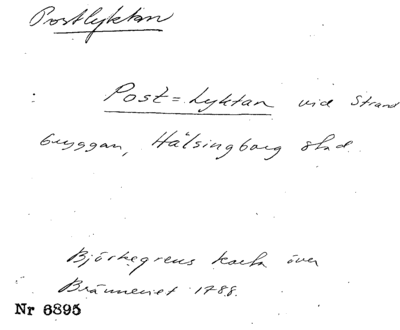 Postlyktan
Post=Lyktan vid Strand
bryggan, Hälsingborg stad.
Björkegrens karta över
Bränneriet 1788.
Nr 6895